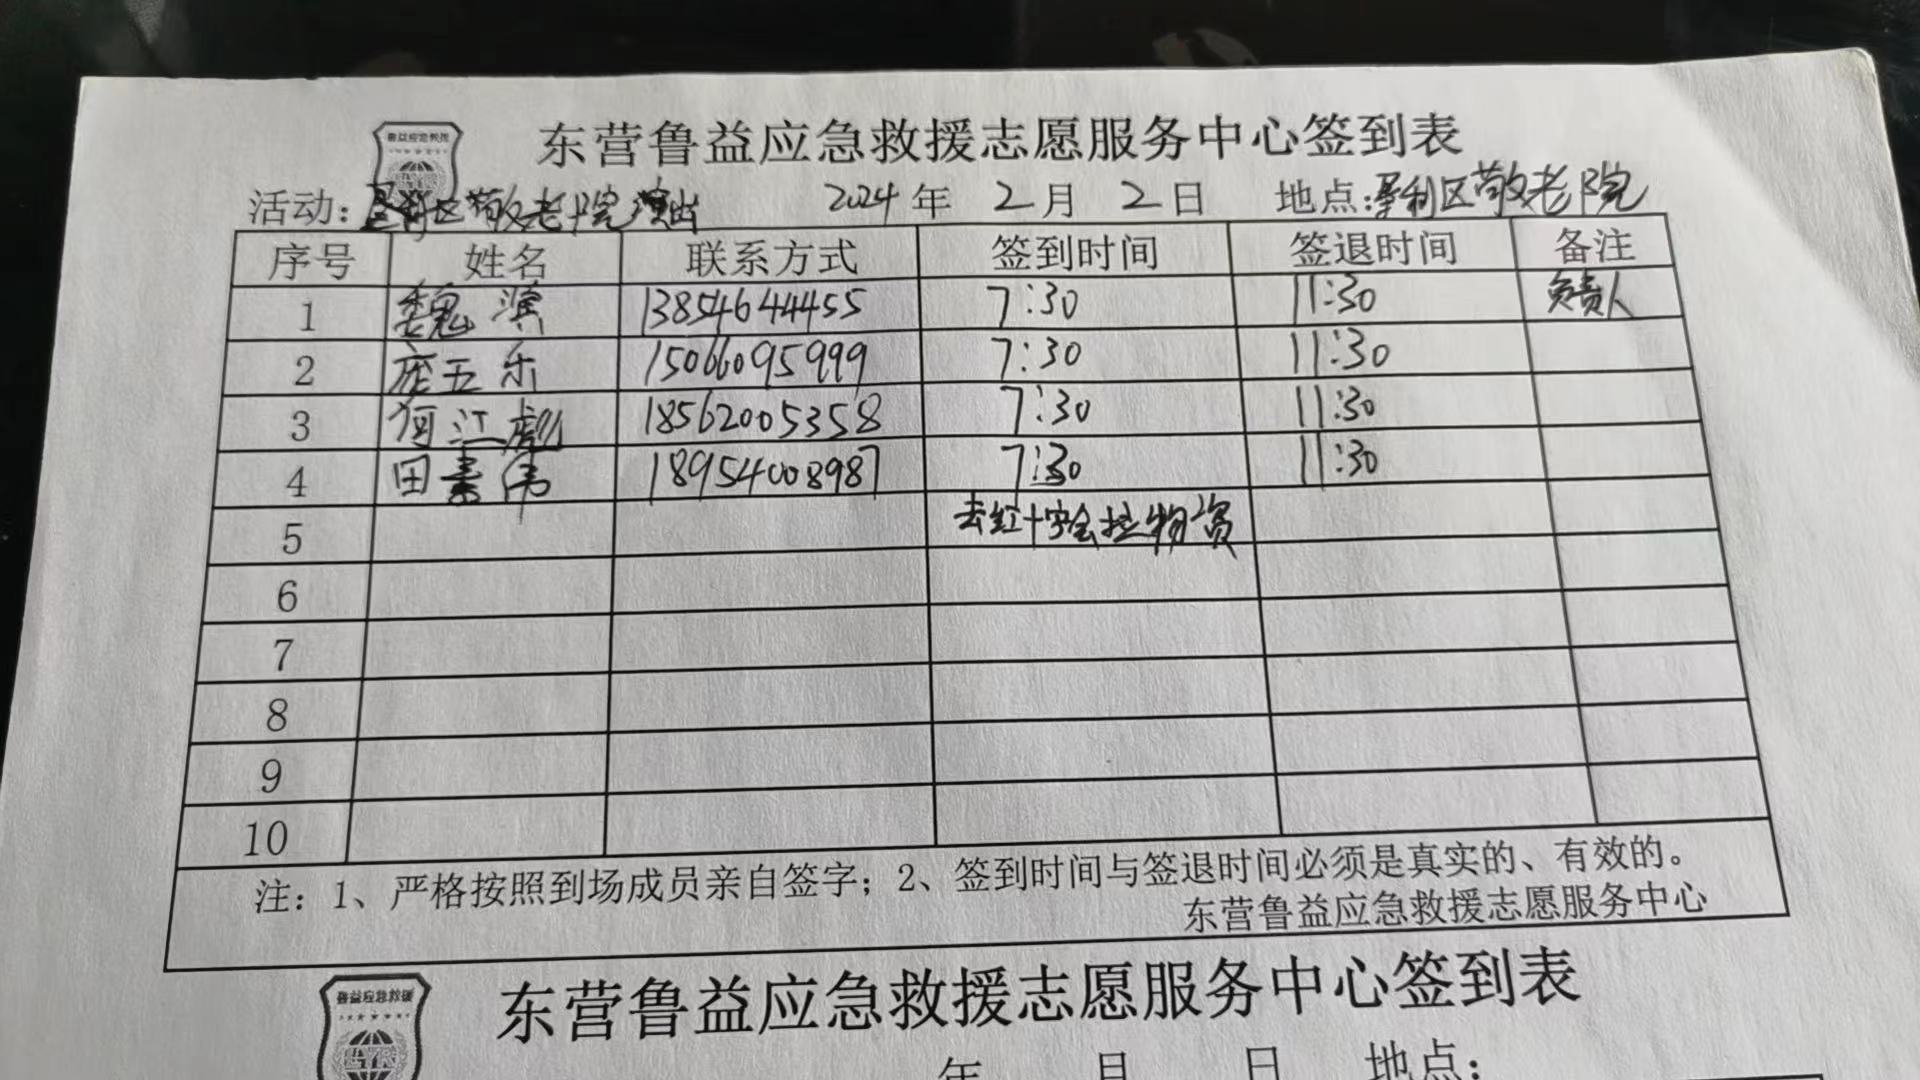 鲁益应急救援
东营鲁益应急救援志愿服务中心签到表
活动:垦利区敬老院演出 2024年 2月 2日 地点:垦利区敬老院
序号 姓名 联系方式 签到时间 签退时间 备注
1 魏滨 13854644455 7:30 11:30 负责人
2 庞五乐 15066095999 7:30 11:30
3 何江彪 18562005358 7:30 11:30
4 田素伟 18954008987 7:30 11:30
5 去红十字会拉物资
6
7
8
9
10
注:1、严格按照到场成员亲自签字;2、签到时间与签退时间必须是真实的、有效的。
东营鲁益应急救援志愿服务中心
鲁益应急救援
东营鲁益应急救援志愿服务中心签到表
年 月 日 地点: